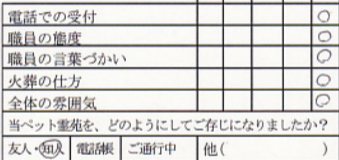 電話での受付
職員の態度
職員の言葉づかい
火葬の仕方
全体の雰囲気
当ペット霊苑を、どのようにしてご存じになりましたか？
友人・知人 電話帳 ご通行中 他(